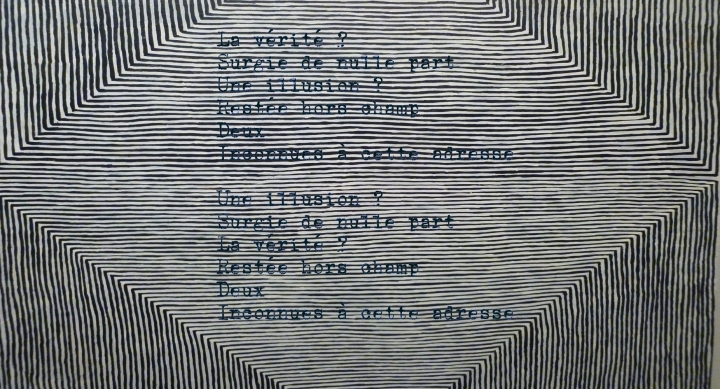 La vérité ?
Surgie de nulle part
Une illusion ?
Restée hors champ
Deux
Inconnues à cette adresse
Une illusion ?
Surgie de nulle part
La vérité ?
Restée hors champ
Deux
Inconnues à cette adresse